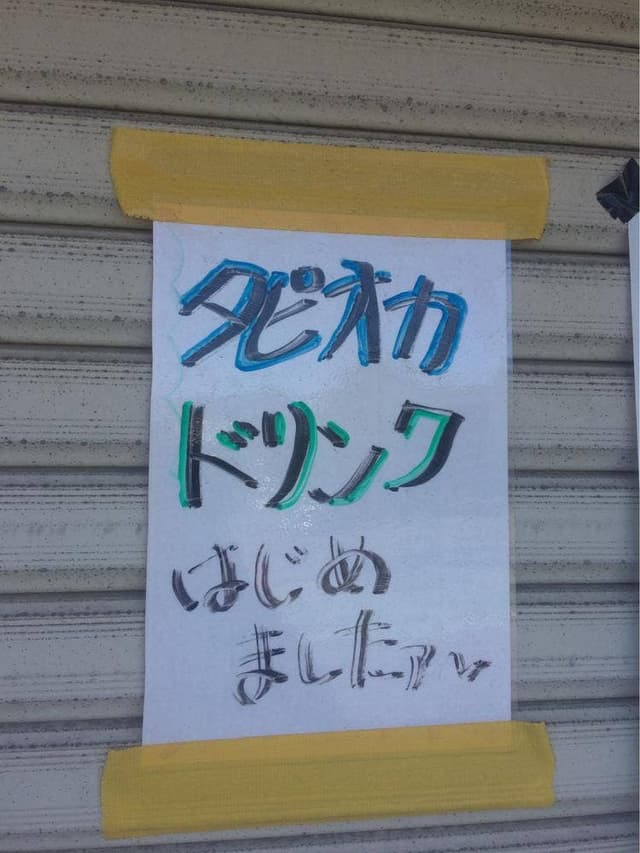 タピオカ
ドリンク
はじめ
ましたァ〜